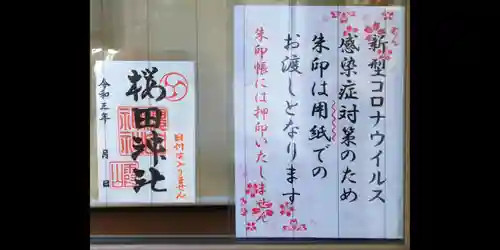 新型コロナウイルス
感染症対策のため
朱印は用紙での
お渡しとなります
朱印帳には押印いたしません
桜田神社
令和三年 月 日
日付は入りません